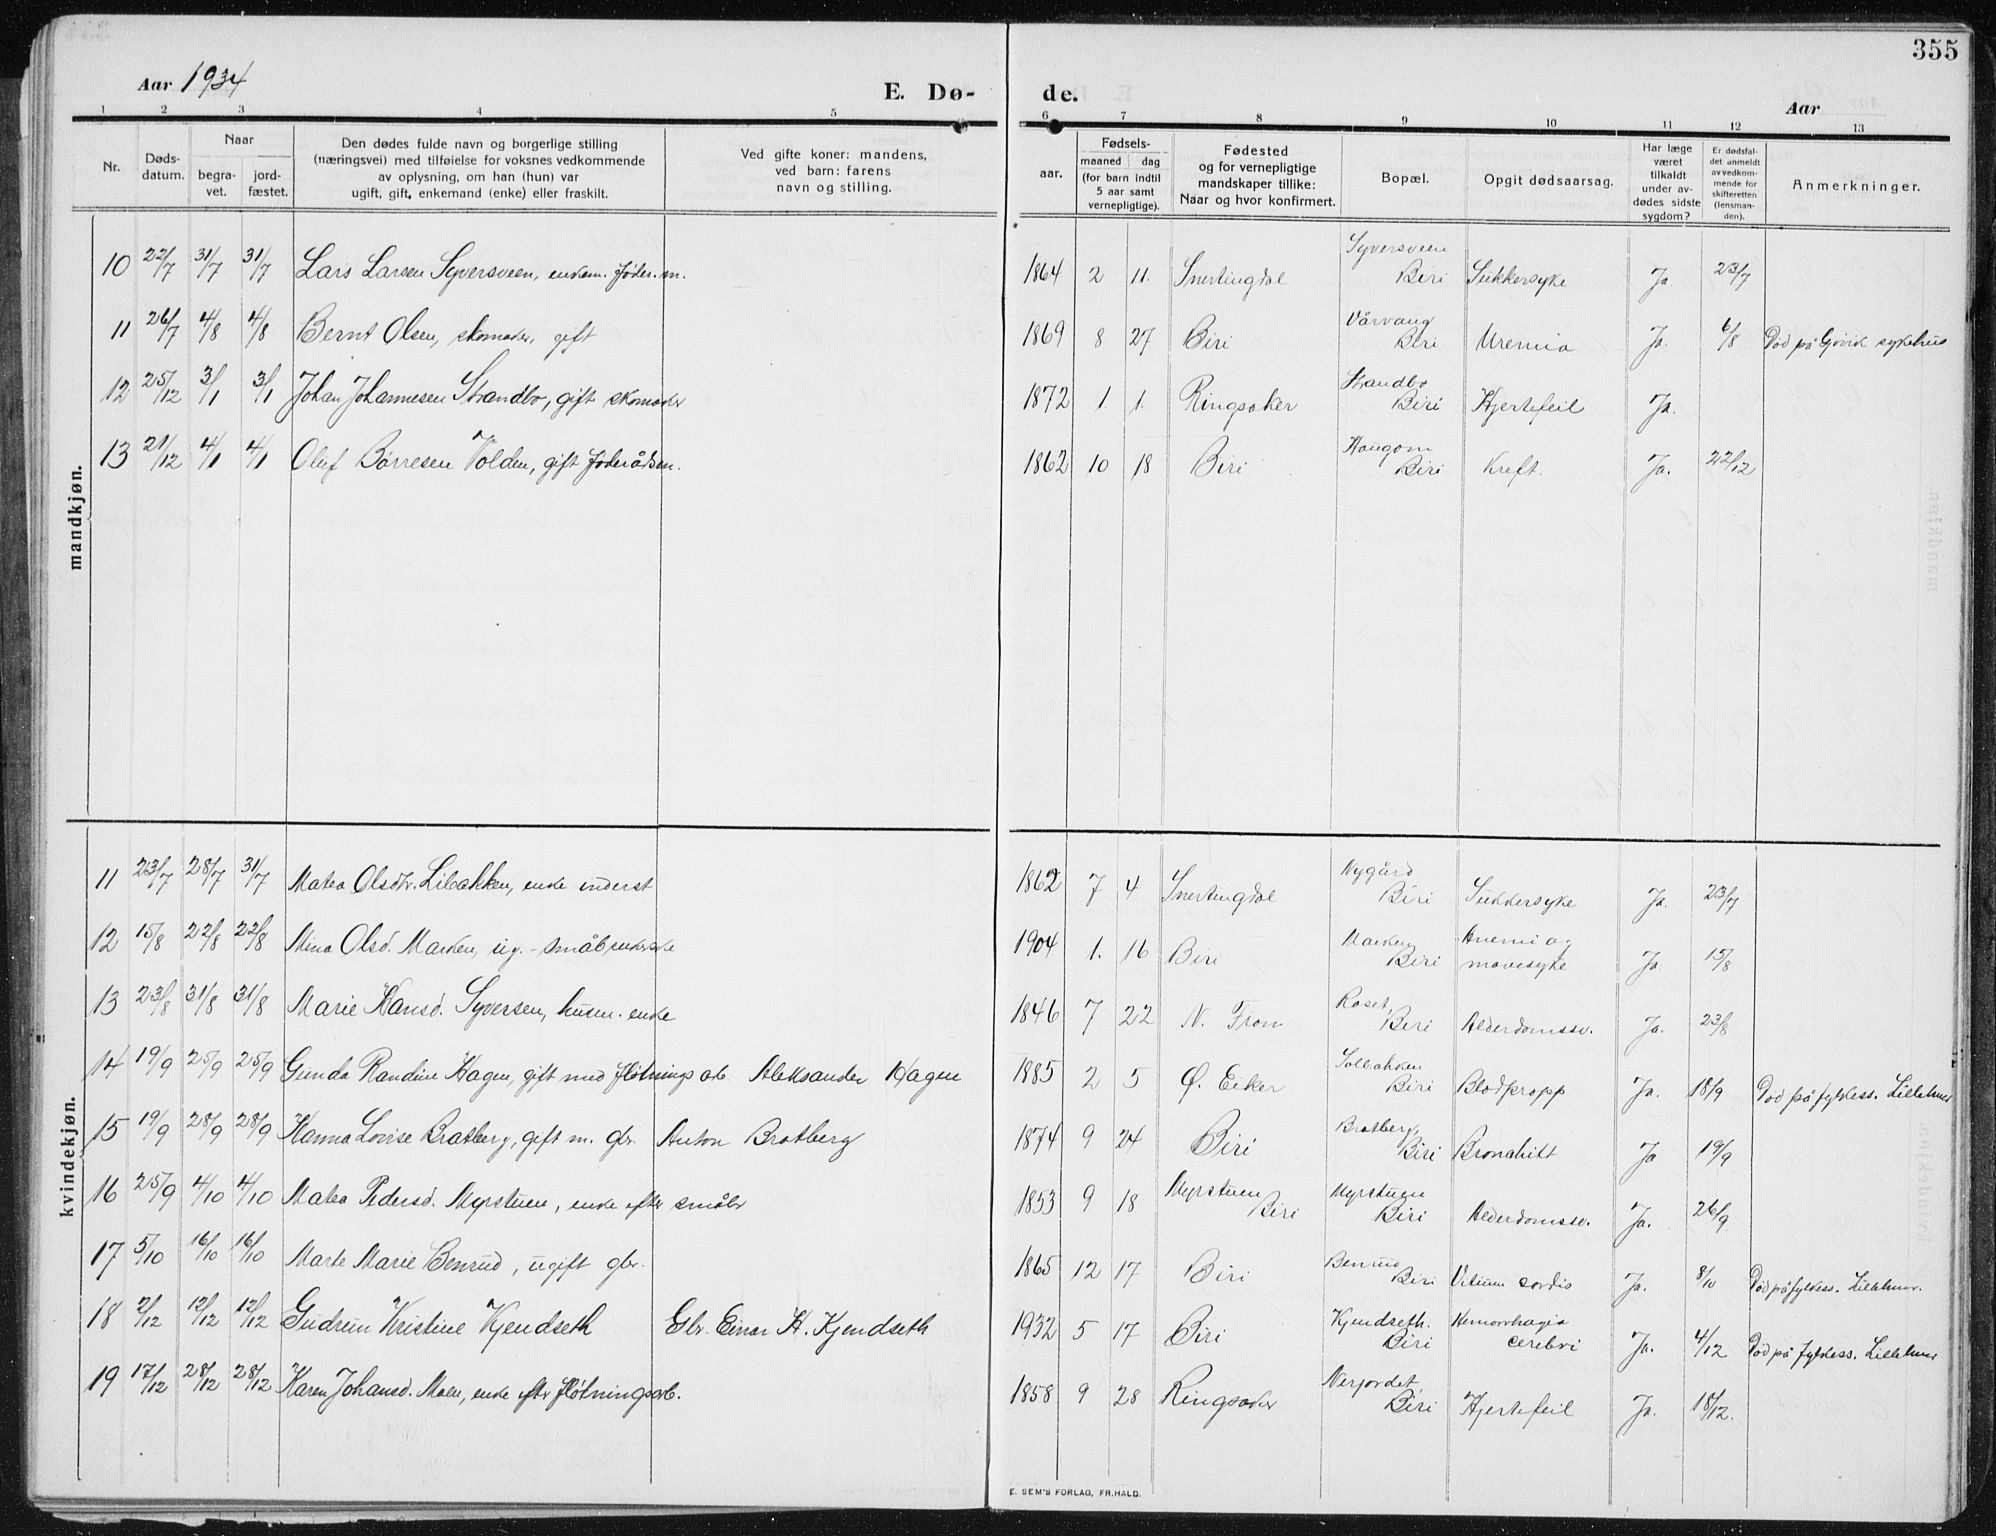 355
Aar 1934
E. Dø- de.
Aar
1 2 3 4 5 6 7 8 9 10 11 12 13
Nr.
Døds-
datum.
Naar
begra-
vet.
jord-
fæstet.
Den dødes fulde navn og borgerlige stilling
(næringsvei) med tilføielse for voksnes vedkommende
av oplysning, om han (hun) var
ugift, gift, enkemand (enke) eller fraskilt.
Ved gifte koner: mandens,
ved barn: farens
navn og stilling.
Fødsels-
aar.
maaned dag
(for barn indtil
5 aar samt
vernepligtige).
Fødested
og for vernepligtige
mandskaper tillike:
Naar og hvor konfirmert.
Bopæl.
Opgit dødsaarsag.
Har læge
været
tilkaldt
under av-
dødes sidste
sygdom?
Er dødsfal-
det anmeldt
av vedkom-
mende for
skifteretten
(lensman-
den).
Anmerkninger.
mandkjøn.
10 22/7 31/7 31/7 Lars Larsen Syversveen, enkem. föder.m. 1864 2 11. Snertingdal Syversveen Biri Sukkersyke Ja 23/7
11 26/7 4/8 4/8 Bernt Olsen, skomaker, gift 1869 8 27 Biri Vårvang Biri Uremia Ja. 6/8 Död på Gjövik sykehus
12 25/12 3/1 3/1 Johan Johannesen Strandbo, gift skomaker 1872 1. 1. Ringsaker Strandbo Biri Hjertefeil Ja.
13 21/12 4/1 4/1 Oluf Börresen Volden, gift föderådsm. 1862 10 18 Biri Haugom Biri Kreft. Ja. 22/12
kvindekjøn.
11 23/7 28/7 31/7 Matea Olsdtr. Libakken, enke inderst 1862 7 4 Snertingdal Nygård Biri Sukkersyke Ja. 23/7
12 15/8 22/8 22/8 Mina Olsd. Marken, ug. 1904 1. 16 Biri Marken Biri Anemi og mavesyke Ja 15/8
13 23/8 31/8 31/8 Marie Hansd. Syversen, husm. enke 1846 7 22 N. Fron Roset, Biri Alderdomssv. Ja. 23/8
14 19/9 25/9 25/9 Gunda Randine Hagen, gift med flötningsarb. Aleksander Hagen 1885 2 5 Ø. Eiker Solbakken Biri Blodpropp Ja. 18/9 Död på fylkess. Lillehmer
15 19/9 28/9 28/9 Hanna Lovise Bratberg, gift m. gbr. Anton Bratberg 1874 9 24 Biri Bratberg, Biri Bronchitt Ja 19/9
16 25/9 4/10 4/10 Matea Pedersd. Myrstuen, enke efter småbr 1853 9 18 Myrstuen Biri Myrstuen Biri Alderdomssv. Ja. 26/9
17 5/10 16/10 16/10 Marte Marie Benrud, ugift gbr. 1865 12 17 Biri Benrud Biri Vitium cordis Ja. 8/10 Död på fylkess. Lillehmr.
18 2/12 12/12 12/12 Gudrun Kristine Kjendseth Gbr. Einar H. Kjendseth 1932 5 17 Biri Kjendseth. Biri Hemorrhagia cerebri Ja. 4/12 Död på fylkess. Lillehmr
19 17/12 28/12 28/12 Karen Johansd. Moen, enke eftr flötningsarb. 1858 9 28 Ringsaker Nerjordet Biri Hjertefeil Ja. 18/12.
E. SEM'S FORLAG, FR.HALD.